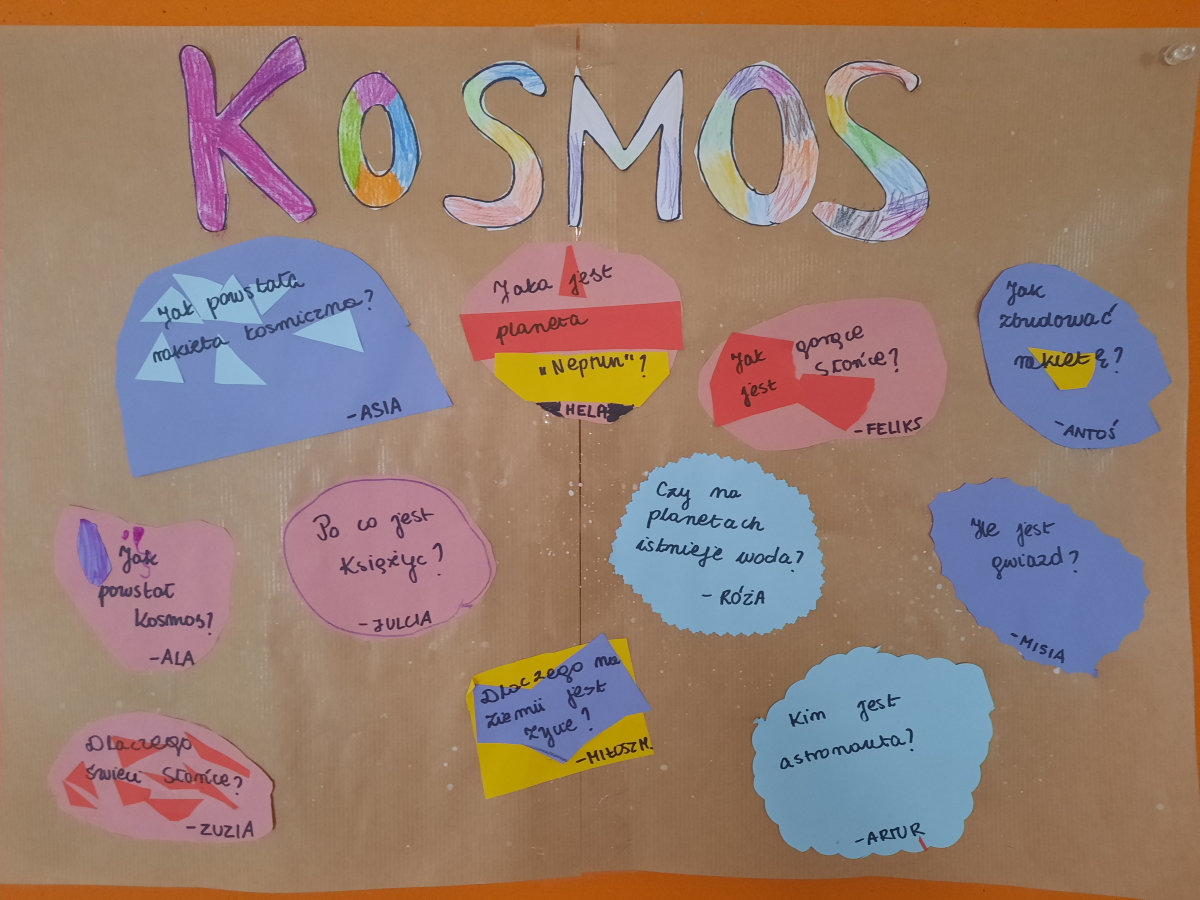 KOSMOS
Jak powstała
rakieta kosmiczna?
-ASIA
Jaka jest
planeta
„Neptun"?
HELA
Jak
jest
gorące
Słońce?
-FELIKS
Jak
zbudować
rakietę?
-ANTOŚ
Jak
powstał
Kosmos?
-ALA
Po co jest
Księżyc?
-JULCIA
Czy na
planetach
istnieje woda?
- RÓŻA
Ile jest
gwiazd?
-MISIA
Dlaczego
świeci Słońce?
-ZUZIA
Dlaczego na
Ziemii jest
życie?
-MIŁOSZ M.
Kim jest
astronauta?
-ARTUR